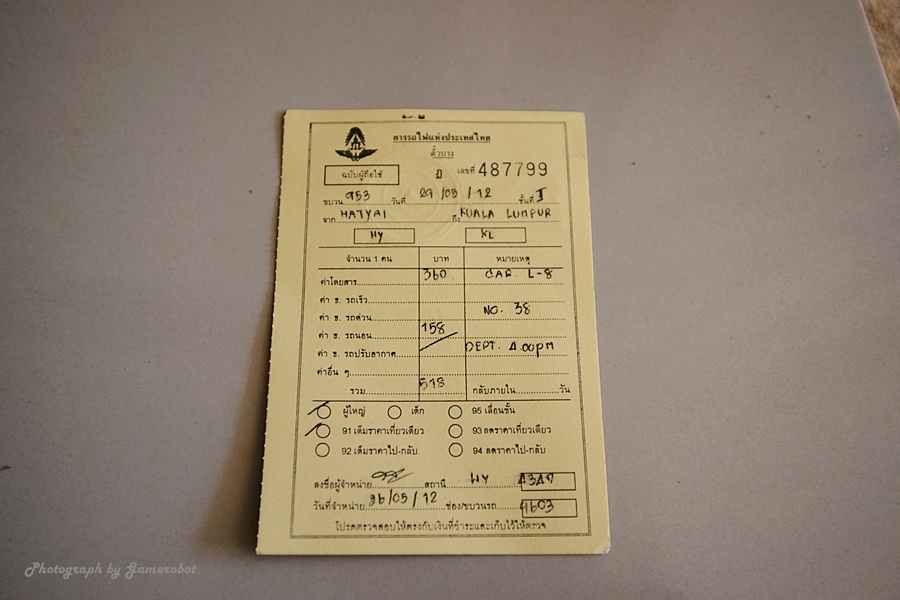 การรถไฟแห่งประเทศไทย
ตั๋วบาง
ฉบับผู้ถือใช้ ปี เลขที่ 487799
ขบวน 953 วันที่ 29/05/12 ชั้นที่ I
จาก HATYAI ถึง KUALA LUMPUR
HY KL
จำนวน 1 คน บาท หมายเหตุ
ค่าโดยสาร 360 CAR. L-8
ค่า ธ. รถเร็ว
ค่า ธ. รถด่วน NO. 38
ค่า ธ. รถนอน 158
ค่า ธ. รถปรับอากาศ DEPT. 4.00pm
ค่าอื่น ๆ
รวม 518 กลับภายใน วัน
ผู้ใหญ่ เด็ก 95 เลื่อนชั้น
91 เต็มราคาเที่ยวเดียว 93 ลดราคาเที่ยวเดียว
92 เต็มราคาไป-กลับ 94 ลดราคาไป-กลับ
ลงชื่อผู้จำหน่าย สถานี HY 4347
วันที่จำหน่าย 26/05/12 ช่อง/ขบวนรถ 9603
โปรดตรวจสอบให้ตรงกับเงินที่ชำระและเก็บไว้ให้ตรวจ
Photograph by Gamerobot